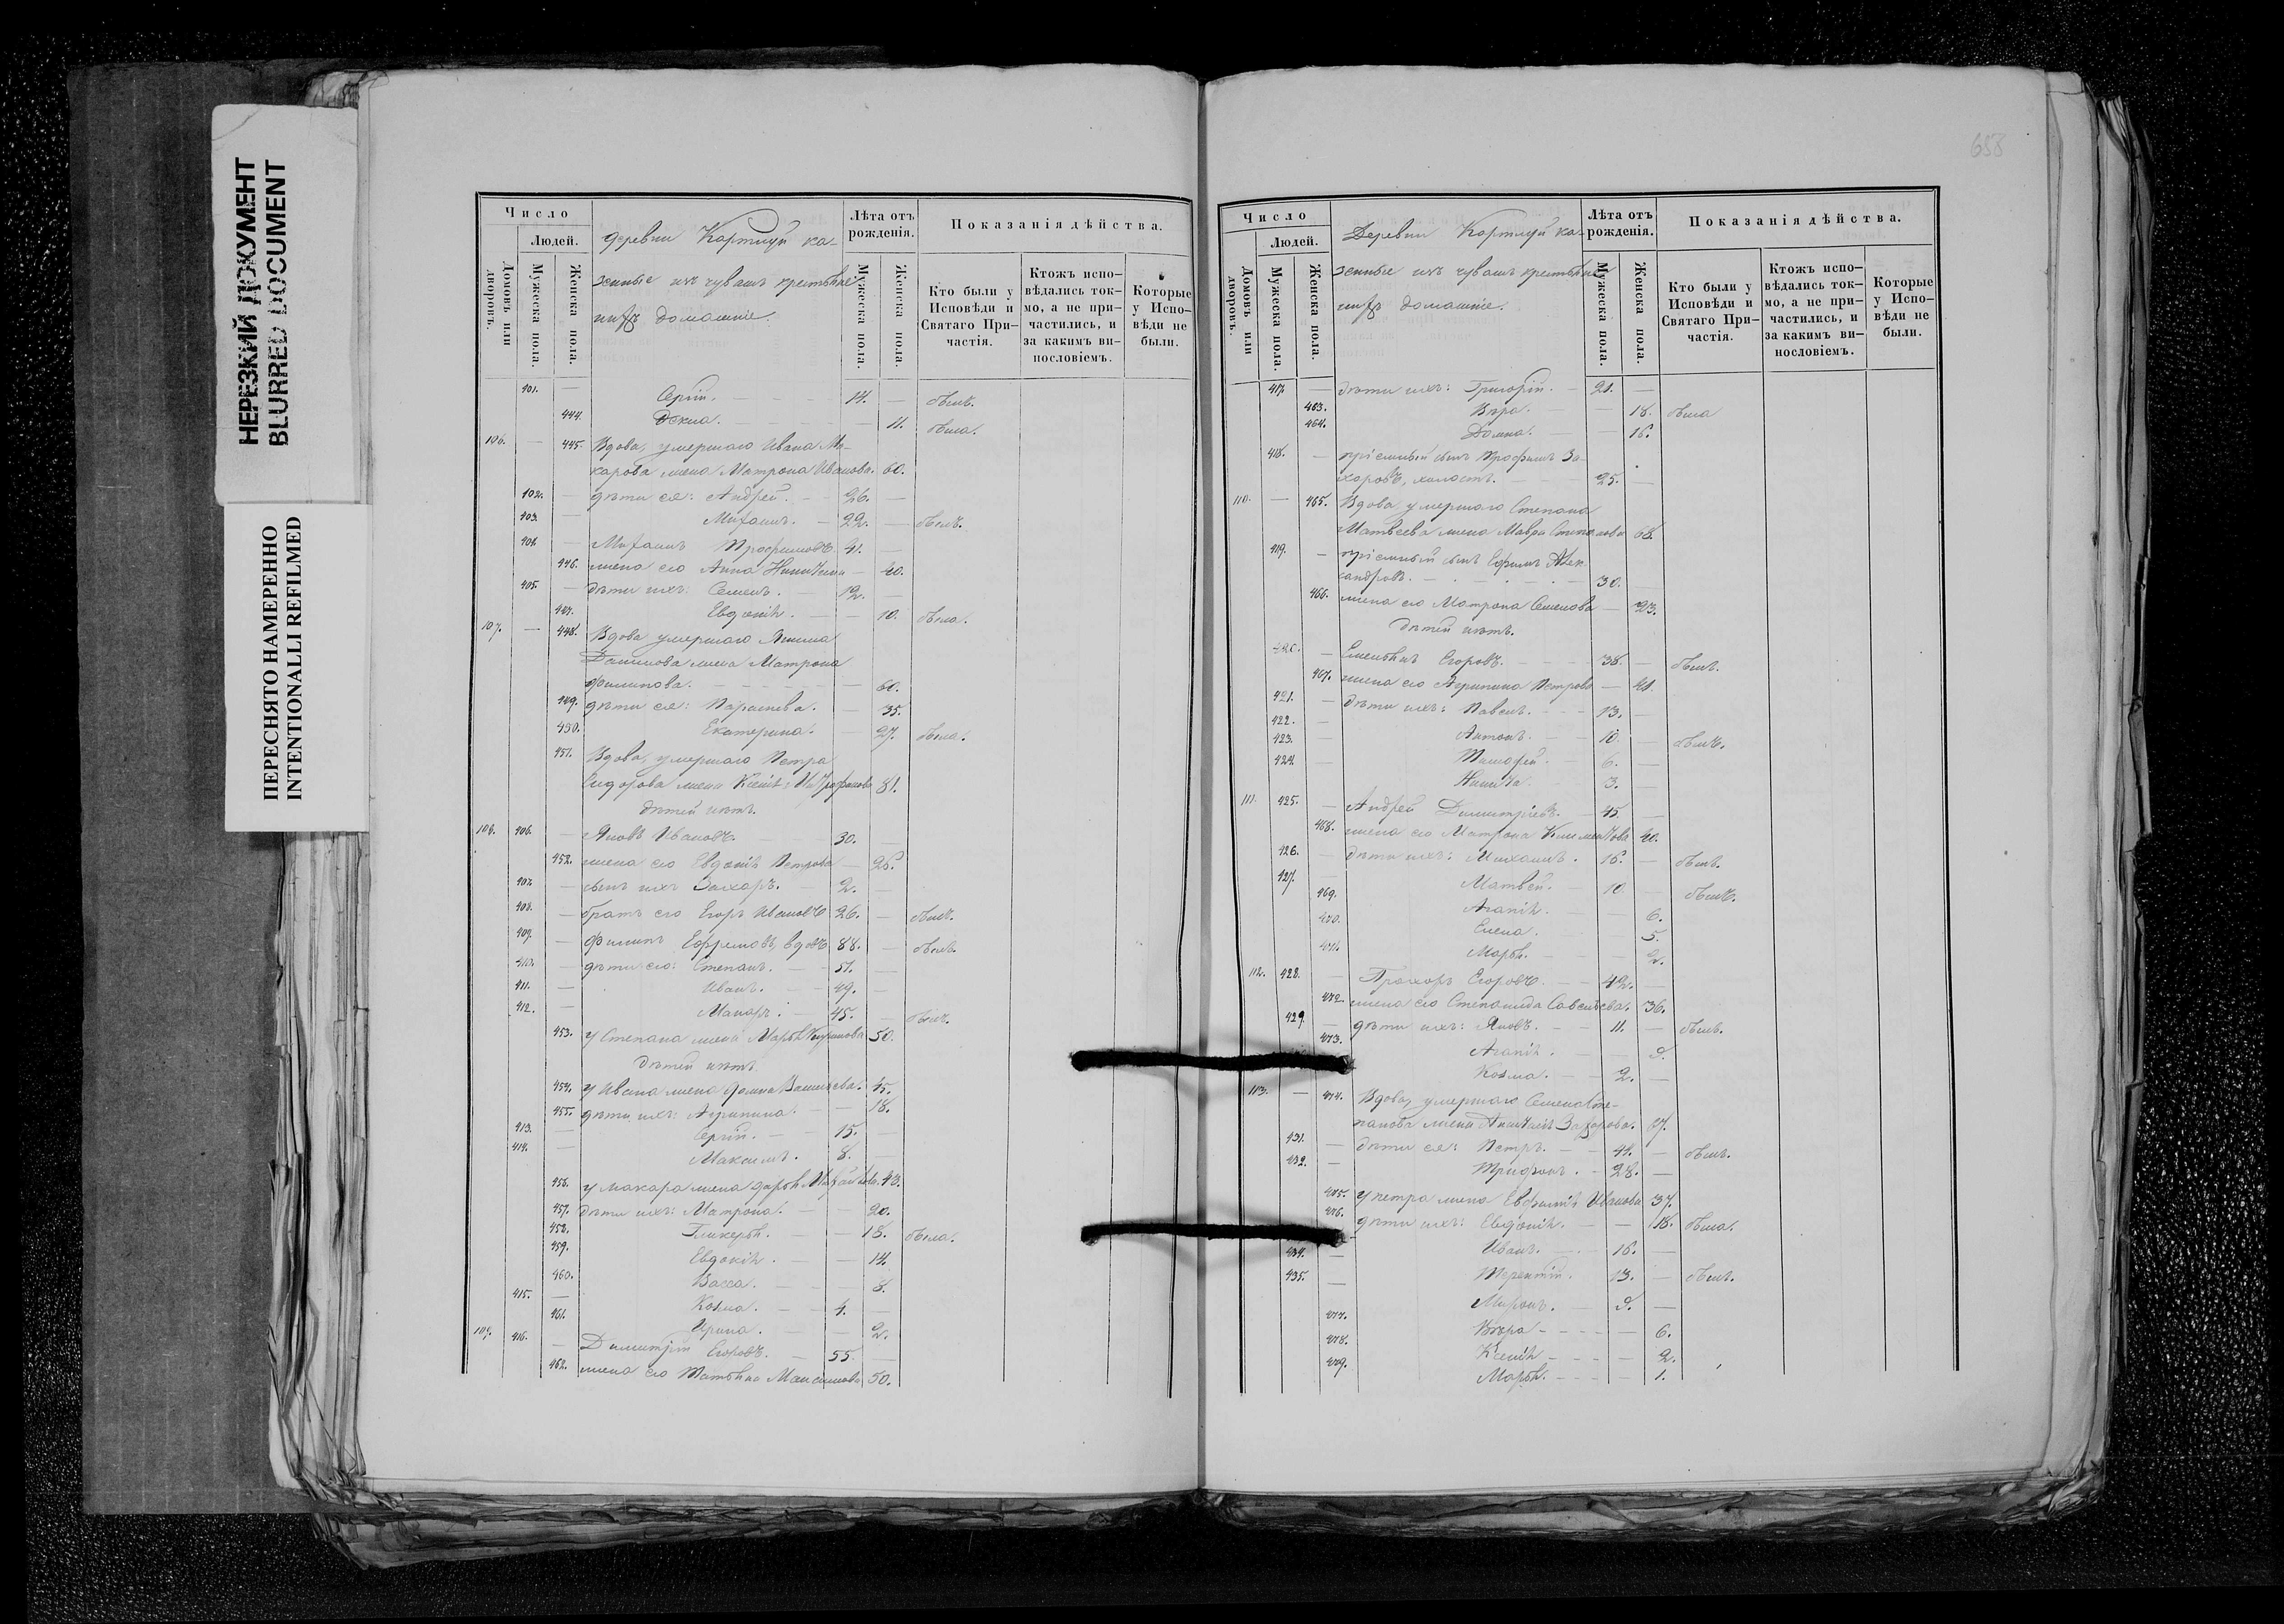 НЕРЕЗКИЙ ДОКУМЕНТ
BLURRED DOCUMENT
ПЕРЕСНЯТО НАМЕРЕННО
INTENTIONALLI REFILMED
Число
Людей.
Домовъ или дворовъ.
Мужеска пола.
Женска пола.
деревни Картлуй ка-
зенные изъ чувашъ крестьяне
и ихъ домашніе.
Лѣта отъ рожденія.
Мужеска пола.
Женска пола.
Показанія дѣйства.
Кто были у Исповѣди и Святаго При-частія.
Ктожъ испо-вѣдались ток-мо, а не при-частились, и за какимъ ви-нословіемъ.
Которые у Испо-вѣди не были.
401. — Сергій. — 14. — былъ.
444. Фекла. — 11. была.
106. — 445. Вдова, умершаго Ивана Ма-
карова жена Матрона Иванова. 60.
402. — дѣти ея: Андрей. — 26. —
403. — Михаилъ. — 22. — былъ.
404. — Михаилъ Трофимовъ. 41. —
446. жена его Анна Никитина — 40.
405. — дѣти ихъ: Семенъ. — 12. —
447. Евдокія. — 10. была.
107. — 448. Вдова умершаго
Данилова жена Матрона
Филипова. — 60.
449. дѣти ея: Параскева. — 35.
450. Екатерина. — 27. была.
451. Вдова, умершаго Петра
Сидорова жена Ксенія 81.
дѣтей нѣтъ.
108. 406. — Яковъ Ивановъ. — 30. —
452. жена его Евдокія Петрова — 25.
407. — сынъ ихъ Захаръ. — 2. —
408. — братъ его Егоръ Ивановъ 26. — былъ.
409. — Филипъ Ефремовъ, вдовъ 88. — былъ.
410. — дѣти его: Степанъ. — 51. —
411. — Иванъ. — 49. —
412. — Макаръ. — 45. — былъ.
453. у Степана жена Марья 50.
дѣтей нѣтъ.
454. у Ивана жена Домна Васильева. 45.
455. дѣти ихъ: Агрипина. — 18.
413. — Сергій. — 15. —
414. — Максимъ. 8. —
456. у Макара жена Дарья 43.
457. дѣти ихъ: Матрона. — 20.
458. Гликерья. — 18. была.
459. Евдокія. — 14.
460. Васса. — 8.
415. — Козма. — 4. —
461. Ирина. — 2.
109. 416. — Димитрій Егоровъ. — 55. —
462. жена его Татьяна Максимова 50.
658
Число
Людей.
Домовъ или дворовъ.
Мужеска пола.
Женска пола.
Деревни Картлуй ка-
зенные изъ чувашъ крестьяне
и ихъ домашніе.
Лѣта отъ рожденія.
Мужеска пола.
Женска пола.
Показанія дѣйства.
Кто были у Исповѣди и Святаго При-частія.
Ктожъ испо-вѣдались ток-мо, а не при-частились, и за какимъ ви-нословіемъ.
Которые у Испо-вѣди не были.
417. — дѣти ихъ: Григорій. — 21. —
463. Вѣра. — 18. была
464. Домна. — 16.
418. — пріемный сынъ Трофимъ За-
харовъ, холостъ. — 25. —
110. — 465. Вдова умершаго Степана
Матвеева жена Мавра Степанова 68.
419. — пріемный сынъ Ефимъ Алек-
сандровъ. — 30. —
466. жена его Матрона Семенова — 23.
дѣтей нѣтъ.
420. — Емельянъ Егоровъ. — 38. — былъ.
467. жена его Агрипина Петрова — 41.
421. — дѣти ихъ: Павелъ. — 13. —
422. — Антонъ. — 10. — былъ.
423. — Тимофей. — 6. —
424. Никита. — 3. —
111. 425. — Андрей Димитріевъ. — 45. —
468. жена его Матрона Климентова 40.
426. — дѣти ихъ: Михаилъ. 16. — былъ.
427. — Матвей. — 10. — былъ.
469. Агапія. — 6.
470. Елена. — 5.
471. Марья. — 2.
112. 428. — Прохоръ Егоровъ. — 42. —
472. жена его Степанида Савельева. 36.
429. — дѣти ихъ: Яковъ. — 11. — былъ.
473. Агапія. — 9.
Козма. — 2. —
113. — 474. Вдова, умершаго Семена Сте-
панова жена Захарова. 67.
431. — дѣти ея: Петръ. — 41. — былъ.
432. — Трифонъ. — 28. —
475. у Петра жена Евфимія Иванова 37.
476. дѣти ихъ: Евдокія. — 18. была.
434. — Иванъ. — 16. —
435. — Терентій. 13. — былъ.
Миронъ. — 9. —
477. Вѣра — 6.
478. Ксенія — 2.
479. Марья. — 1.